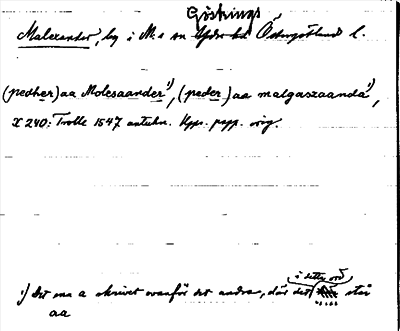 Göstrings
Malexander, by i M:s sn Ydre hd Östergötland l.
(pedher) aa Molesaander¹), (peder) aa malgaszaanda¹),
X 240: Trolle 1547 antekn. Upps. papp. orig.
i detta ord
¹) Det ena a skrivet ovanför det andra, där det står
aa